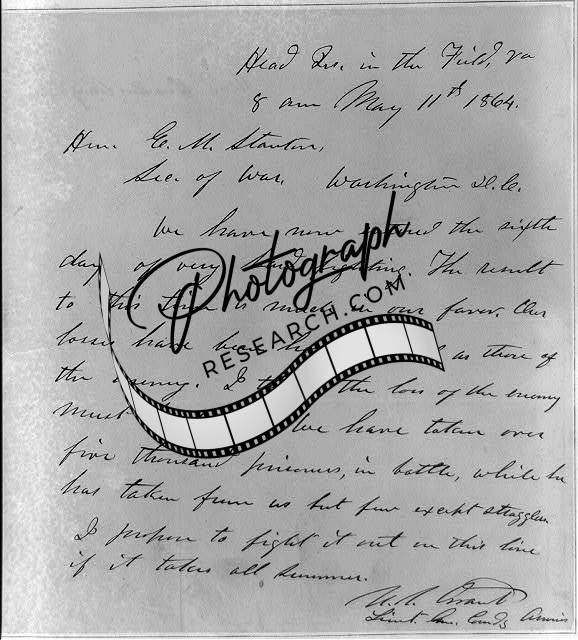 Head Qrs. in the Field, Va
8 am May 11th 1864.
Hon. E. M. Stanton,
Sec. of War, Washington D.C.
We have now entered the sixth
day of very hard fighting. The result
to this time is much in our favor. Our
losses have been as those of
the enemy. I the loss of the enemy
must We have taken over
five thousand prisoners, in battle, while he
has taken from us but few except stragglers
I propose to fight it out on this line
if it takes all summer.
U. S. Grant
Lieut. Gen. Comdg Armies
Photograph
RESEARCH.COM